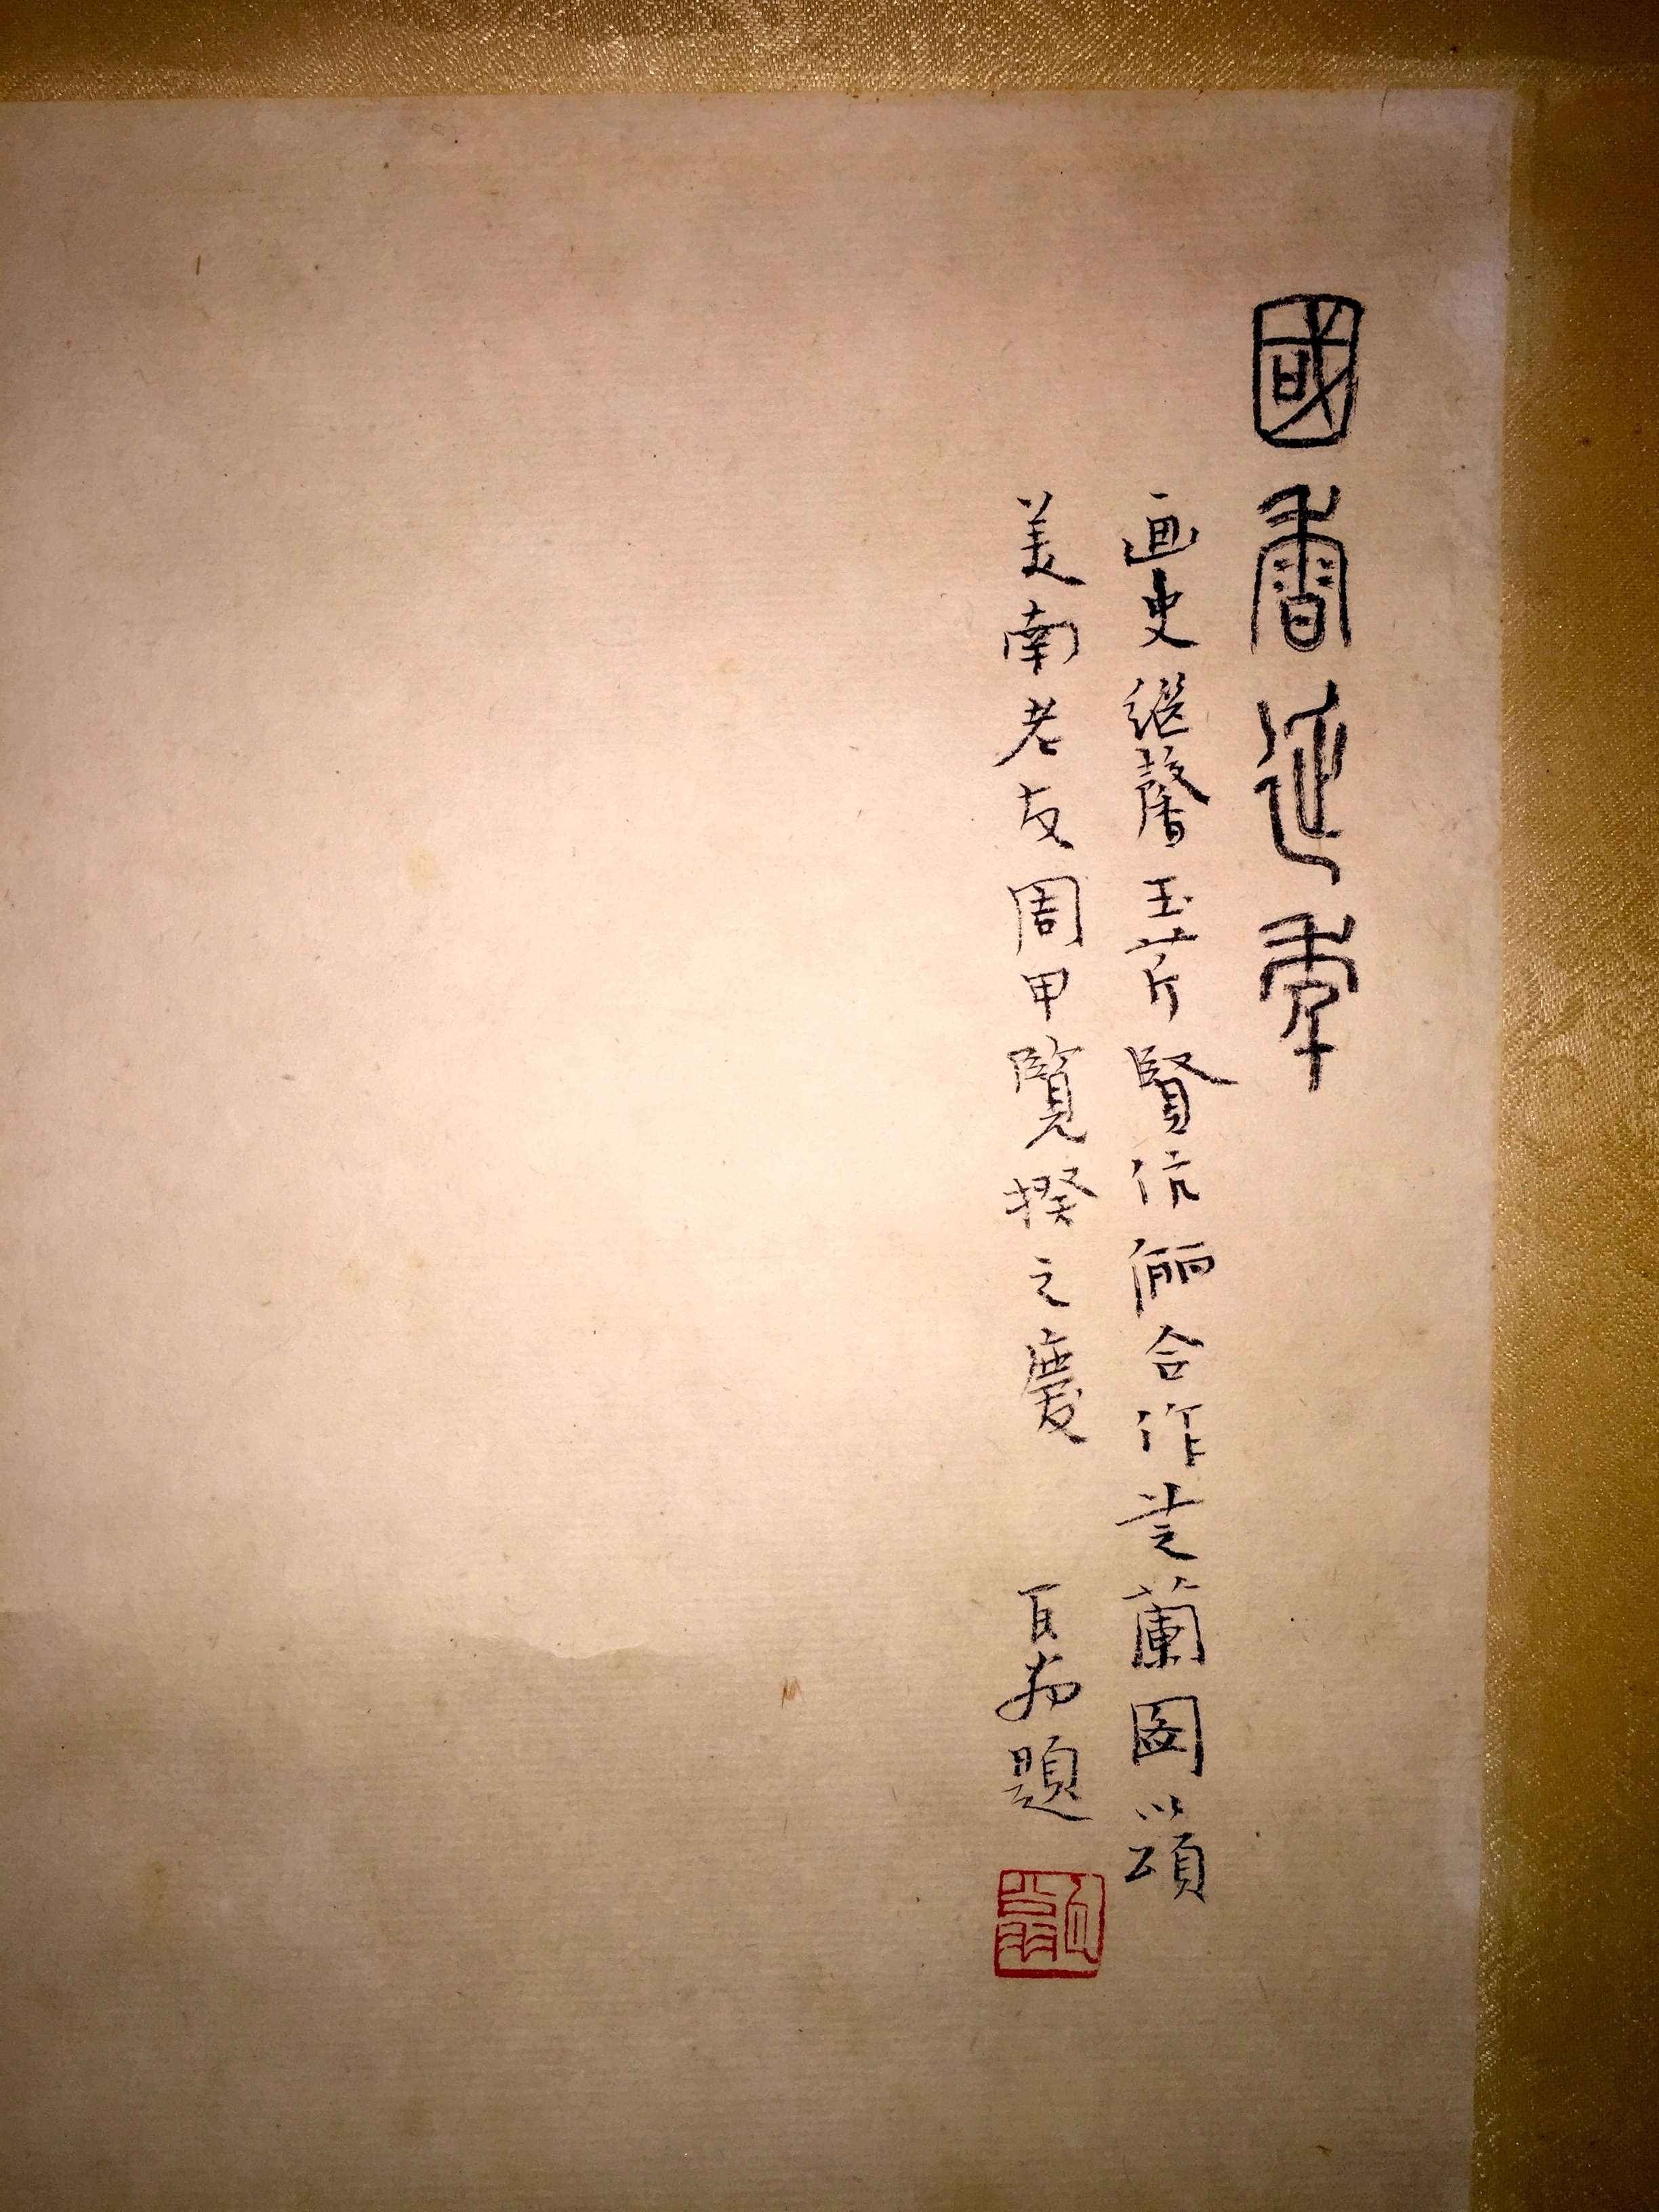 國香延年
画史继馨玉芹賢伉儷合作芝蘭圖以頌
美南老友周甲覽揆之慶 百揚題